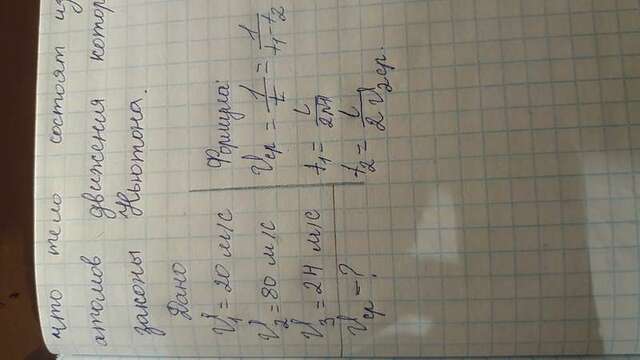 что тело состоят из
атомов движения котор
законы Ньютона.
Дано
V₁ = 20 м/с
V₂ = 80 м/с
V₃ = 24 м/с
Vср - ?
Формула:
Vср = 1/t = 1/t₁-t₂
t₁ = L
t₂ = L/2V₂ср.